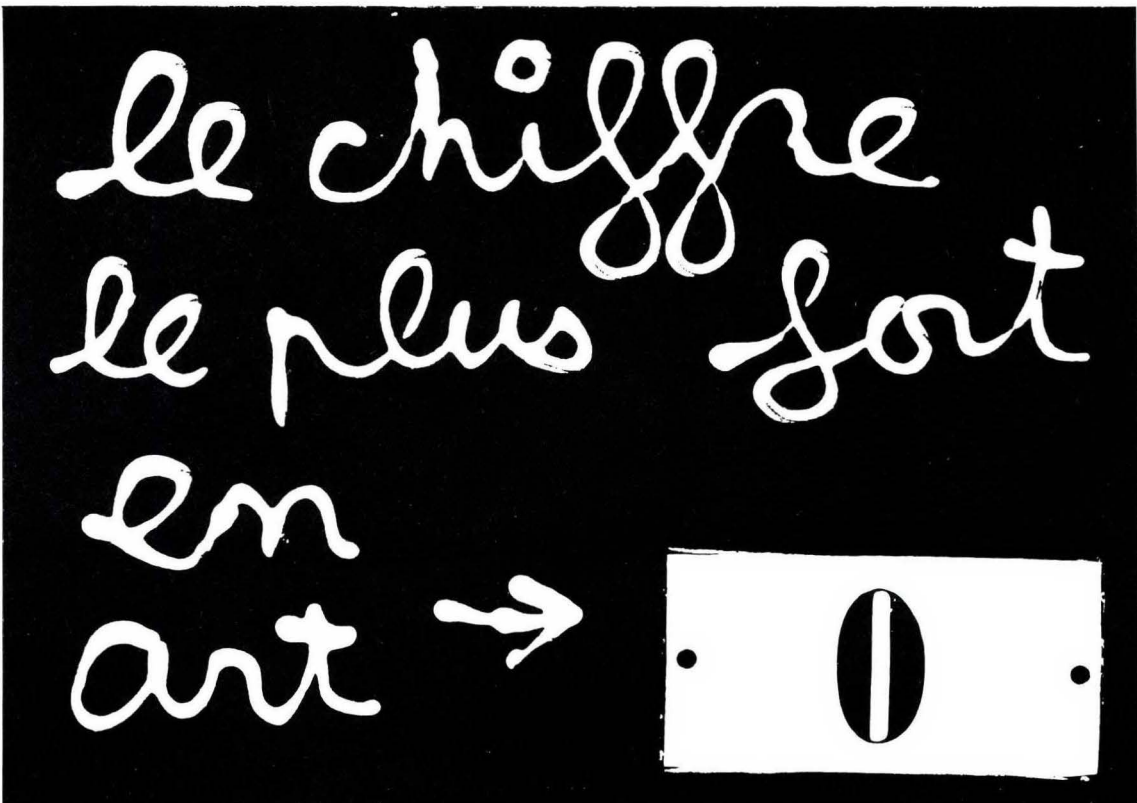 le chiffre
le plus fort
en
art → 0